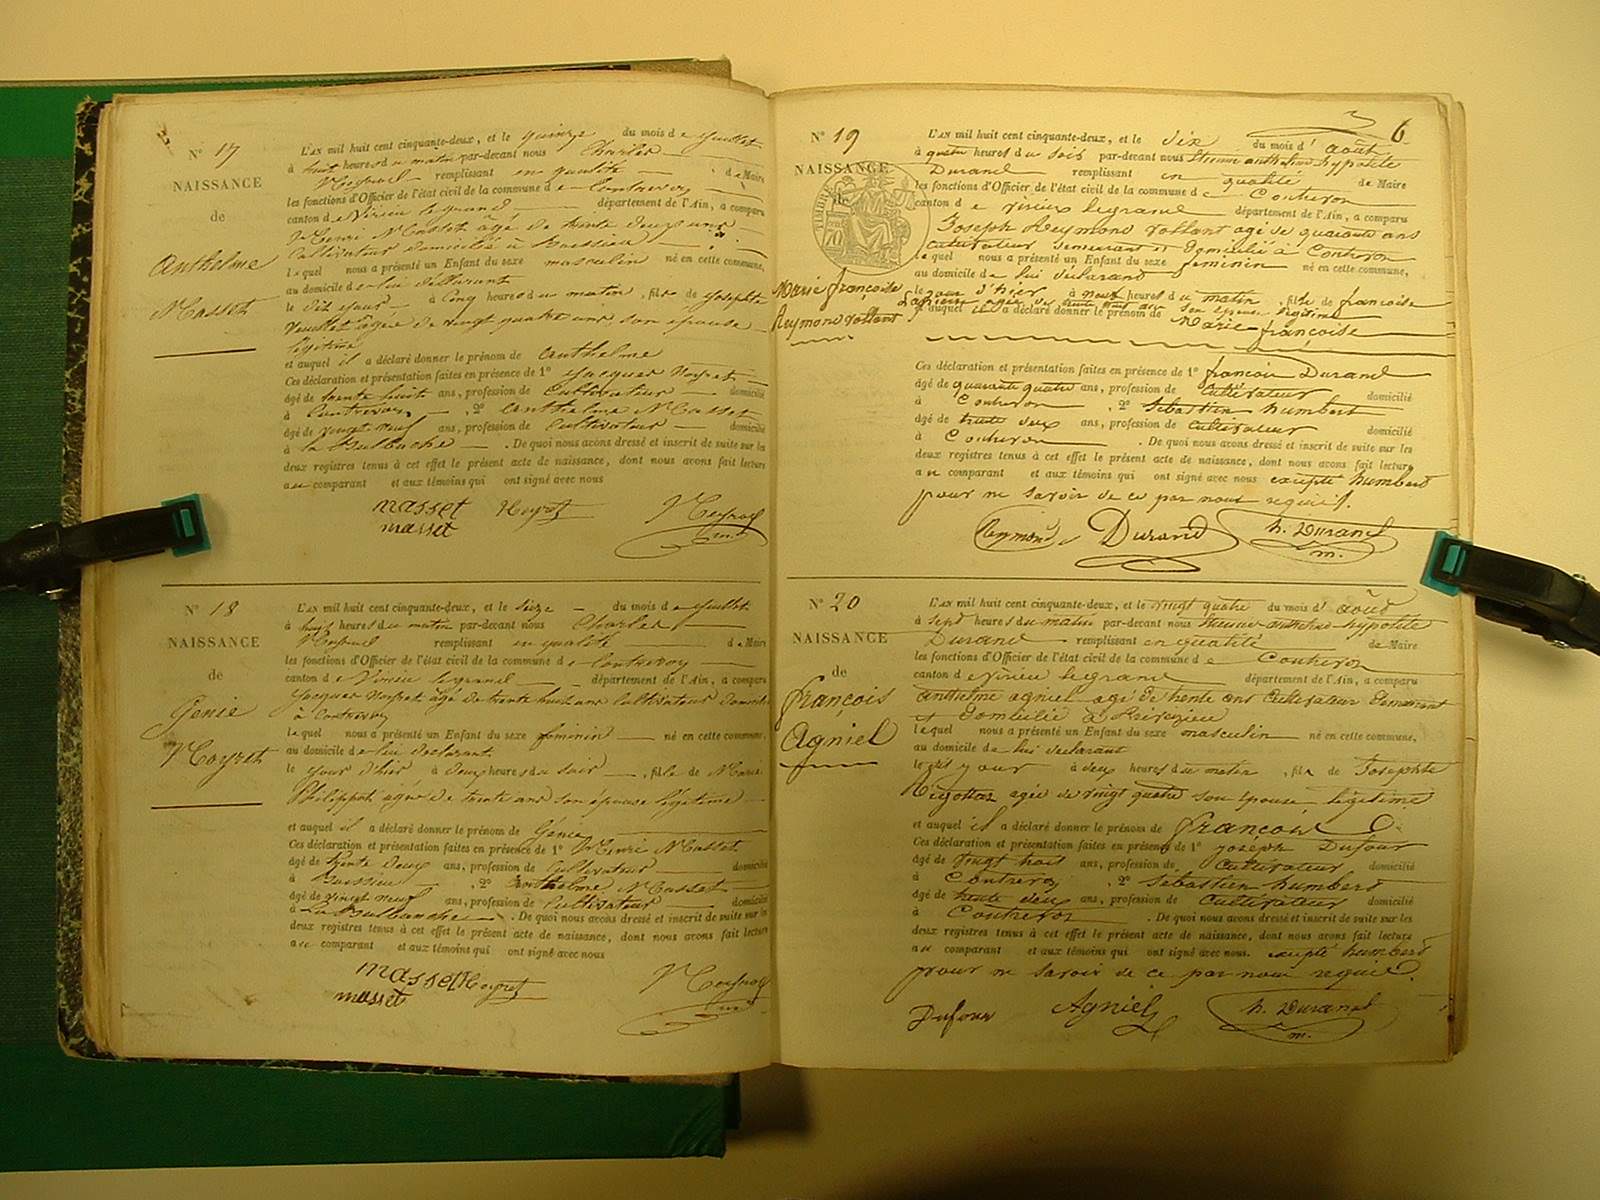 N° 17
NAISSANCE
de
Anthelme
Masset
L'AN mil huit cent cinquante-deux, et le quinze du mois de Juillet
à huit heures du matin par-devant nous Charles
remplissant en qualité de Maire
les fonctions d'Officier de l'état civil de la commune de Contrevoz
canton de Virieu le grand département de l'Ain, a comparu
Henri Masset âgé de trente deux ans
Cultivateur domicilié à
lequel nous a présenté un Enfant du sexe masculin né en cette commune,
au domicile de lui déclarant
le dit jour à cinq heures du matin, fils de Josephte
âgée de vingt quatre ans, son épouse
légitime
et auquel il a déclaré donner le prénom de Anthelme
Ces déclaration et présentation faites en présence de 1° Jacques
âgé de trente huit ans, profession de Cultivateur domicilié
à Contrevoz, 2° Anthelme Masset
âgé de vingt neuf ans, profession de Cultivateur domicilié
à la . De quoi nous avons dressé et inscrit de suite sur les
deux registres tenus à cet effet le présent acte de naissance, dont nous avons fait lecture
au comparant et aux témoins qui ont signé avec nous
masset
masset
N° 18
NAISSANCE
de
Génie
L'AN mil huit cent cinquante-deux, et le seize du mois de Juillet
à huit heures du matin par-devant nous Charles
remplissant en qualité de Maire
les fonctions d'Officier de l'état civil de la commune de Contrevoz
canton de Virieu le grand département de l'Ain, a comparu
Jacques âgé de trente huit ans Cultivateur domicilié
à Contrevoz
lequel nous a présenté un Enfant du sexe féminin né en cette commune,
au domicile de lui déclarant
le jour d'hier à deux heures du soir, fille de Marie
Philippot âgée de trente ans son épouse légitime
et auquel il a déclaré donner le prénom de Génie
Ces déclaration et présentation faites en présence de 1° Henri Masset
âgé de trente deux ans, profession de Cultivateur domicilié
à , 2° Anthelme Masset
âgé de vingt neuf ans, profession de Cultivateur domicilié
à La . De quoi nous avons dressé et inscrit de suite sur les
deux registres tenus à cet effet le présent acte de naissance, dont nous avons fait lecture
au comparant et aux témoins qui ont signé avec nous
masset
masset
6
N° 19
NAISSANCE
de
TIMBRE
70
Marie françoise
Reymond vollant
L'AN mil huit cent cinquante-deux, et le dix du mois d'août
à quatre heures du soir par-devant nous Etienne anthelme hypolite
Durand remplissant en qualité de Maire
les fonctions d'Officier de l'état civil de la commune de Contrevoz
canton de virieu legrand département de l'Ain, a comparu
Joseph Reymond vollant agé de quarante ans
cultivateur demeurant et domicilié à Contrevoz
lequel nous a présenté un Enfant du sexe feminin né en cette commune,
au domicile de lui déclarant
le jour d'hier à neuf heures du matin, fille de françoise
agée de trente ans son épouse légitime
et auquel il a déclaré donner le prénom de Marie françoise
Ces déclaration et présentation faites en présence de 1° françois Durand
âgé de quarante quatre ans, profession de Cultivateur domicilié
à Contrevoz, 2° Sébastien humbert
âgé de trente deux ans, profession de cultivateur domicilié
à Contrevoz. De quoi nous avons dressé et inscrit de suite sur les
deux registres tenus à cet effet le présent acte de naissance, dont nous avons fait lecture
au comparant et aux témoins qui ont signé avec nous excepté humbert
pour ne savoir de ce par nous requis.
Reymond Durand h. Durand
m.
N° 20
NAISSANCE
de
françois
Agniel
L'AN mil huit cent cinquante-deux, et le vingt quatre du mois d'août
à sept heures du matin par-devant nous Etienne anthelme hypolite
Durand remplissant en qualité de Maire
les fonctions d'Officier de l'état civil de la commune de Contrevoz
canton de virieu legrand département de l'Ain, a comparu
anthelme agniel agé de trente ans Cultivateur demeurant
et domicilié à
lequel nous a présenté un Enfant du sexe masculin né en cette commune,
au domicile de lui déclarant
le dit jour à deux heures du matin, fils de Josephte
agée de vingt quatre son épouse légitime
et auquel il a déclaré donner le prénom de françois
Ces déclaration et présentation faites en présence de 1° joseph Dufour
âgé de vingt huit ans, profession de Cultivateur domicilié
à Contrevoz, 2° Sébastien humbert
âgé de trente deux ans, profession de Cultivateur domicilié
à Contrevoz. De quoi nous avons dressé et inscrit de suite sur les
deux registres tenus à cet effet le présent acte de naissance, dont nous avons fait lecture
au comparant et aux témoins qui ont signé avec nous. excepté humbert
pour ne savoir de ce par nous requis.
Dufour Agniel h. Durand
m.